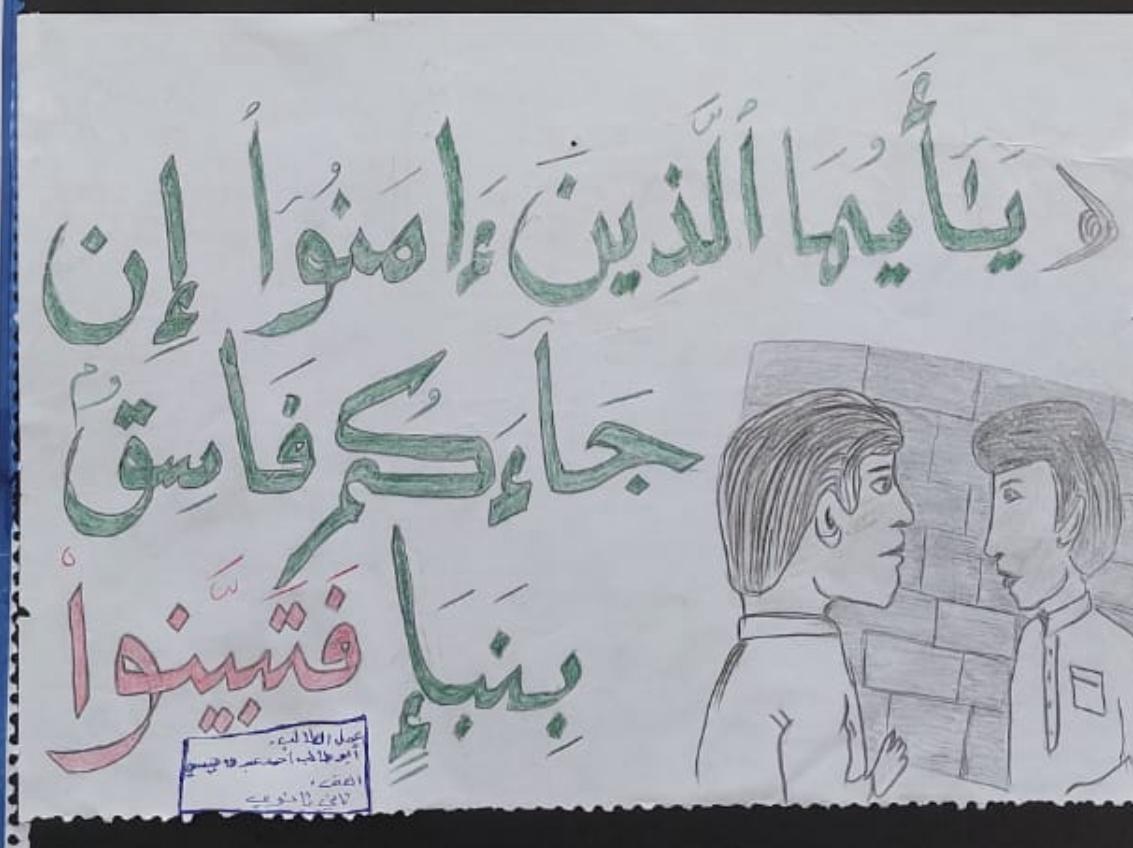 ﴿ يَـٰٓأَيُّهَا ٱلَّذِينَ ءَامَنُوٓا۟ إِن
جَآءَكُمْ فَاسِقٌۢ
بِنَبَإٍ فَتَبَيَّنُوٓا۟
عمل الطالب.
أبو طالب أحمد عبده
الصف.
ثاني ثانوي